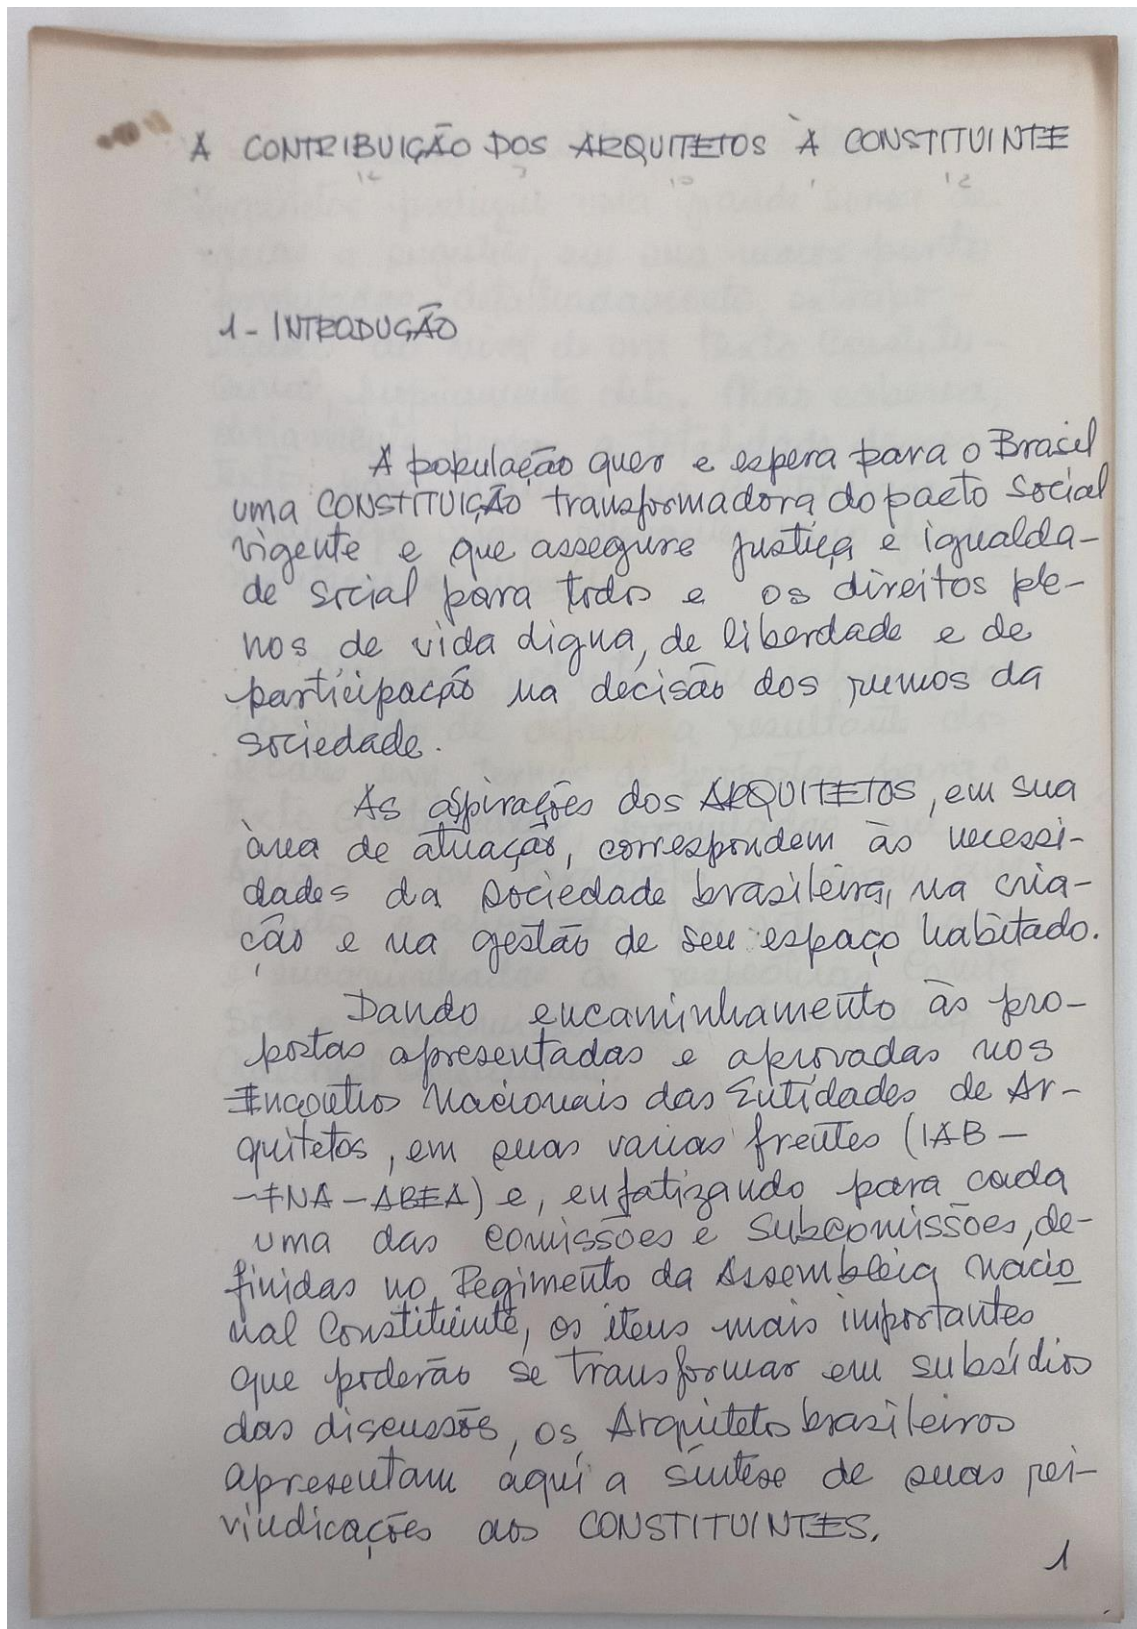 A CONTRIBUIÇÃO DOS ARQUITETOS À CONSTITUINTE
1 - INTRODUÇÃO
A população quer e espera para o Brasil
uma CONSTITUIÇÃO transformadora do pacto social
vigente e que assegure justiça e igualda-
de social para todos e os direitos ple-
nos de vida digna, de liberdade e de
participação na decisão dos rumos da
sociedade.
As aspirações dos ARQUITETOS, em sua
área de atuação, correspondem às necessi-
dades da sociedade brasileira, na cria-
ção e na gestão de seu espaço habitado.
Dando encaminhamento às pro-
postas apresentadas e aprovadas nos
Encontros Nacionais das Entidades de Ar-
quitetos, em suas varias frentes (IAB -
- FNA - ABEA) e, enfatizando para cada
uma das comissões e subcomissões, de-
finidas no Regimento da Assembleia Nacio
nal Constituinte, os itens mais importantes
que poderão se transformar em subsídios
das discussões, os Arquitetos brasileiros
apresentam aqui a síntese de suas rei-
vindicações aos CONSTITUINTES.
1